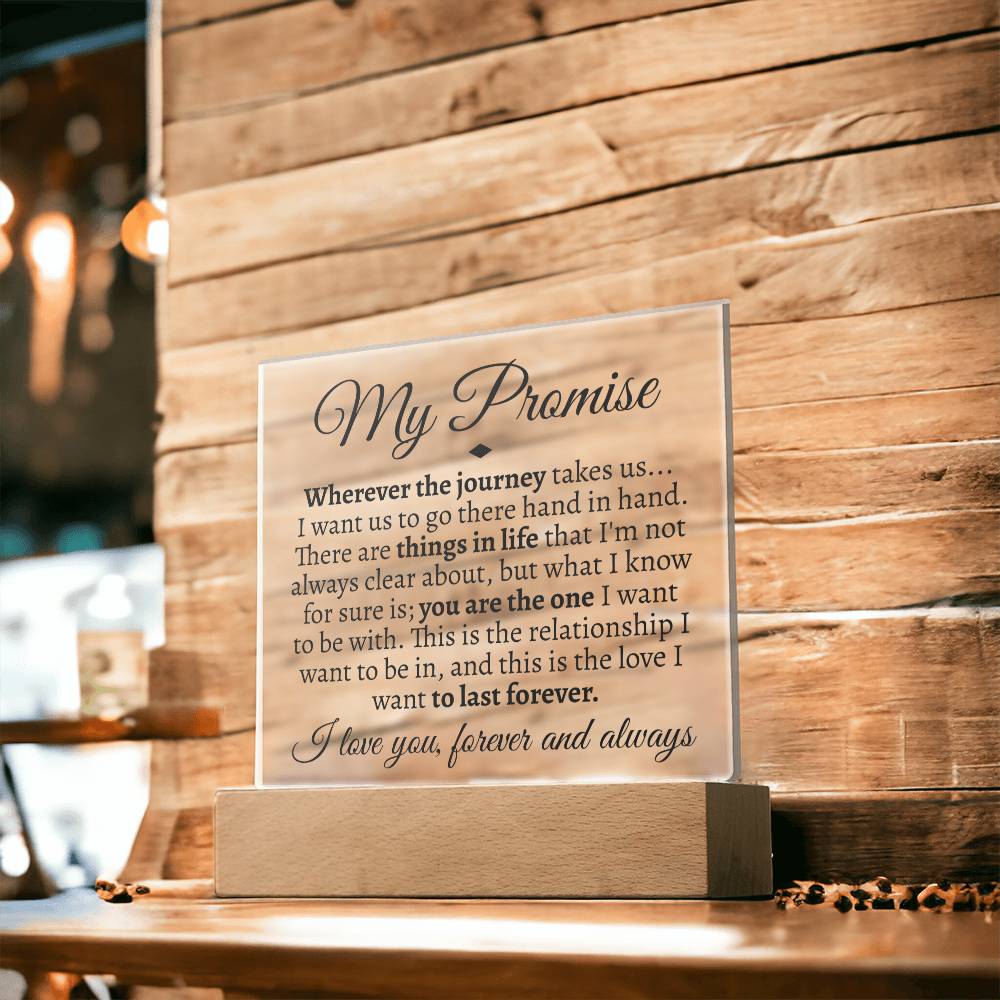 My Promise
Wherever the journey takes us...
I want us to go there hand in hand.
There are things in life that I'm not
always clear about, but what I know
for sure is; you are the one I want
to be with. This is the relationship I
want to be in, and this is the love I
want to last forever.
I love you, forever and always